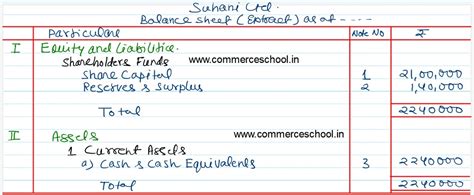 Suhani Ltd.
Balance Sheet (Extract) as at ----
Particulars Note No ₹
I Equity and Liabilities
Shareholders Funds www.commerceschool.in
Share Capital 1 21,00,000
Reserves & Surplus 2 1,40,000
Total 2240000
II Assets www.commerceschool.in
1 Current Assets
a) Cash & Cash Equivalents 3 2240000
Total 2240000